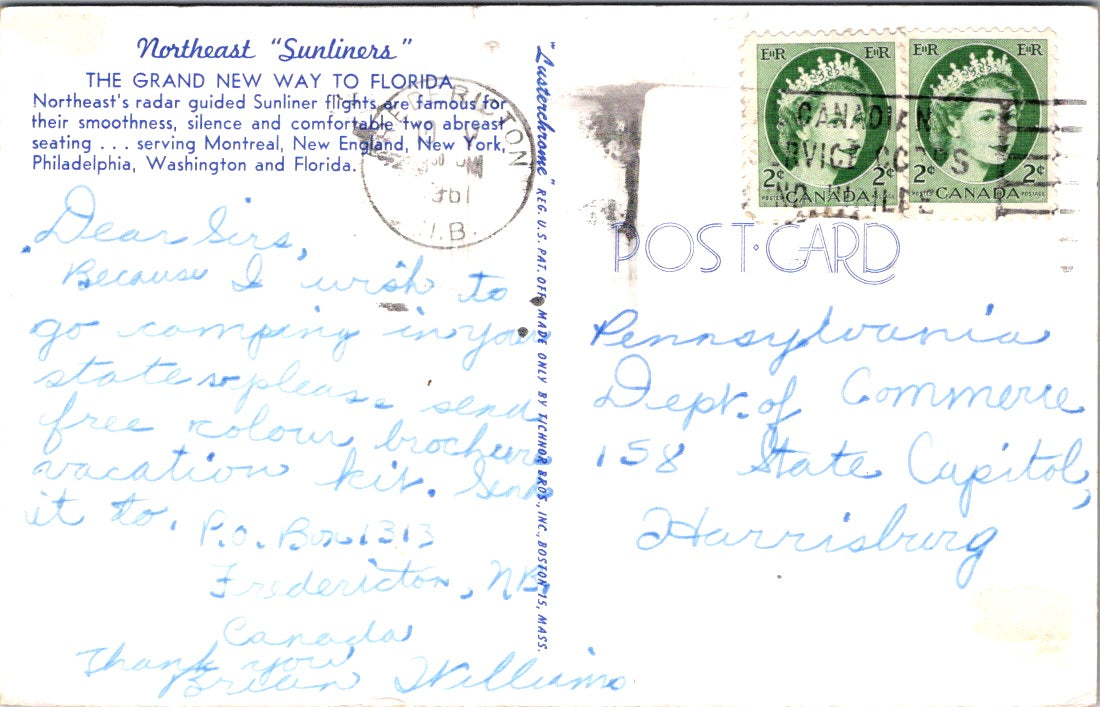 Northeast "Sunliners"
THE GRAND NEW WAY TO FLORIDA
Northeast's radar guided Sunliner flights are famous for
their smoothness, silence and comfortable two abreast
seating . . . serving Montreal, New England, New York,
Philadelphia, Washington and Florida.
Dear Sirs,
Because I wish to
go camping in your
state, please send
free colour brochure
vacation kit. Send
it to.
P.O. Box 1313
Fredericton, NB,
Canada
Thank you
Brian Williams
"Lusterchrome" REG. U.S. PAT. OFF. MADE ONLY BY TICHNOR BROS., INC., BOSTON 15, MASS.
FREDERICTON
N.B.
EIIR EIIR
2¢ 2¢
POSTES CANADA POSTAGE
EIIR EIIR
2¢ 2¢
POSTES CANADA POSTAGE
CANADIAN
POST·CARD
Pennsylvania
Dept. of Commerce
158 State Capitol,
Harrisburg